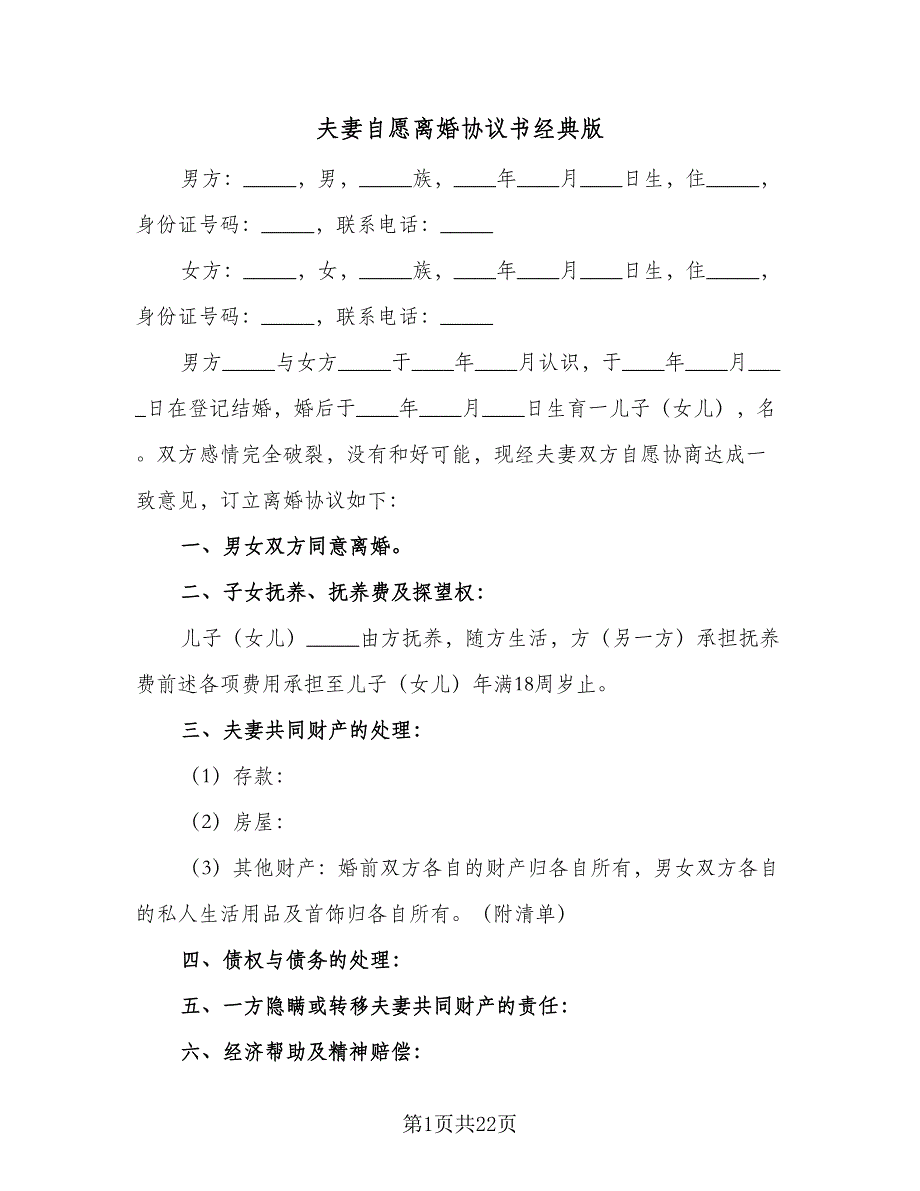 夫妻自愿离婚协议书经典版
男方：_____，男，_____族，____年____月____日生，住_____，
身份证号码：_____，联系电话：_____
女方：_____，女，_____族，____年____月____日生，住_____，
身份证号码：_____，联系电话：_____
男方_____与女方_____于____年____月认识，于____年____月___
_日在登记结婚，婚后于____年____月____日生育一儿子（女儿），名
。双方感情完全破裂，没有和好可能，现经夫妻双方自愿协商达成一
致意见，订立离婚协议如下：
一、男女双方同意离婚。
二、子女抚养、抚养费及探望权：
儿子（女儿）_____由方抚养，随方生活，方（另一方）承担抚养
费前述各项费用承担至儿子（女儿）年满18周岁止。
三、夫妻共同财产的处理：
（1）存款：
（2）房屋：
（3）其他财产：婚前双方各自的财产归各自所有，男女双方各自
的私人生活用品及首饰归各自所有。（附清单）
四、债权与债务的处理：
五、一方隐瞒或转移夫妻共同财产的责任：
六、经济帮助及精神赔偿：
第1页共22页